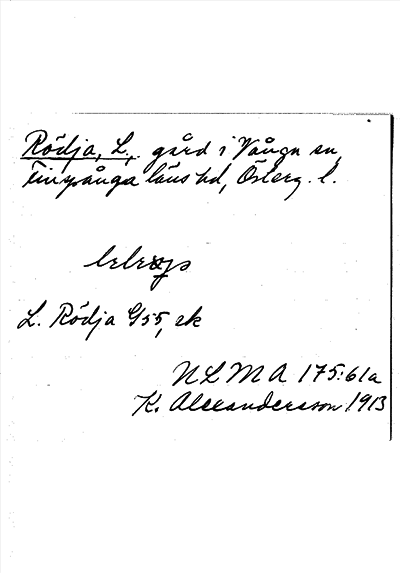 Rödja, L., gård i Vånga sn,
Finspånga läns hd, Österg. l.
L. Rödja G55, ek
NLMA 175:61a
K. Alexandersson 1913